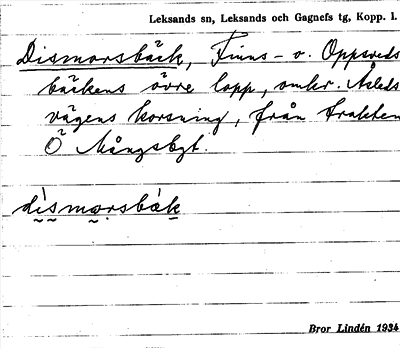 Leksands sn, Leksands och Gagnefs tg, Kopp. l.
Dismorsbäck, Finns- o. Oppsveds
bäckens övre lopp, omkr.
vägens korsning, från trakten
Ö Mångsbgt.
dismorsbäk
Bror Lindén 1934